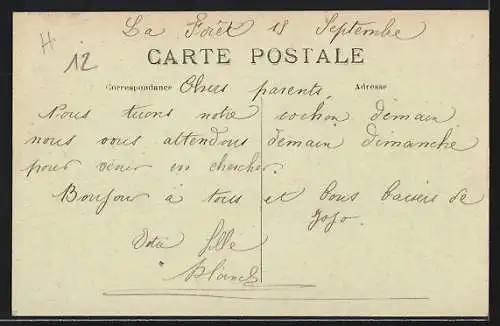 H
12
La Forêt 18 Septembre
CARTE POSTALE
Correspondance
Adresse
Chers parents,
Nous tuons notre cochon demain
nous vous attendons demain dimanche
pour venir en chercher.
Bonjour à tous et bons baisers de
Jojo.
Votre fille
Blanche